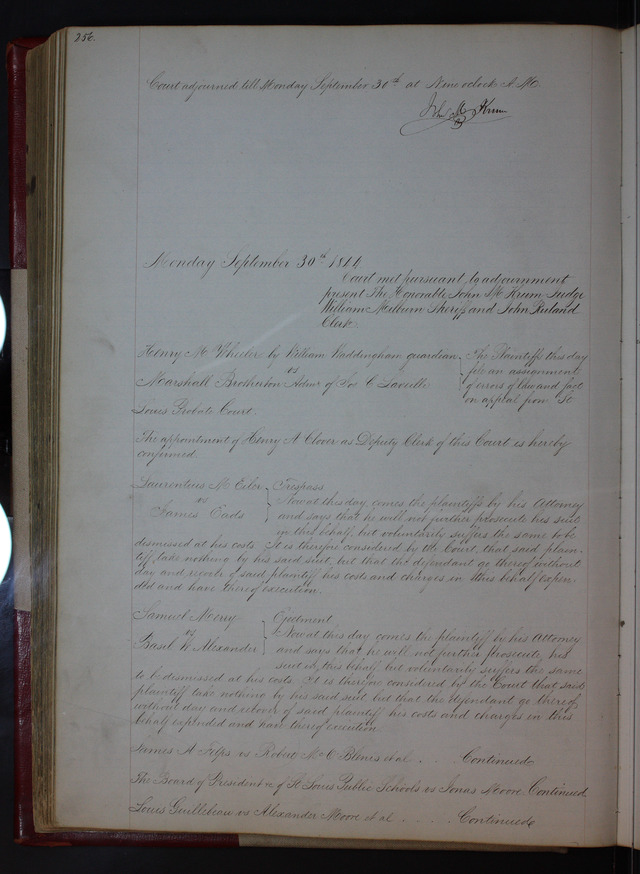 256.
Court adjourned till Monday September 30th at Nine oclock A.M.
John M Krum
Monday September 30th 1844
Court met pursuant to adjournment
present The Honorable John M Krum Judge
William Milburn Sheriff and John Ruland
Clerk.
Henry M Wheeler by William Waddingham guardian
vs
Marshall Brotherton Admr of Jos C Laveille
The Plaintiffs this day
file an assignment
of errors of law and fact
on appeal from St
Louis Probate Court.
The appointment of Henry A Clover as Deputy Clerk of this Court is hereby
confirmed
Laurentius M Eiler
vs
James Eads
Trespass
Now at this day comes the plaintiffs by his Attorney
and says that he will not further prosecute his suit
in this behalf, but voluntarily suffers the same to be
dismissed at his costs. It is therefore considered by the Court, that said plain-
tiff take nothing by his said suit, but that the defendant go thereof without
day and recover of said plaintiff his costs and charges in this behalf expen-
ded and have thereof execution.
Samuel Merry
vs
Basil W Alexander
Ejectment
Now at this day comes the plaintiff by his Attorney
and says that he will not further prosecute his
suit in this behalf but voluntarily suffers the same
to be dismissed at his costs. It is therefore considered by the Court that said
plaintiff take nothing by his said suit but that the defendant go thereof
without day and recover of said plaintiff his costs and charges in this
behalf expended and have thereof execution
James A vs Robert M O et al . . . Continued
The Board of President &c of St Louis Public Schools vs Jonas Moore Continued
Louis Guillebeau vs Alexander Moore et al . . . . . Continued